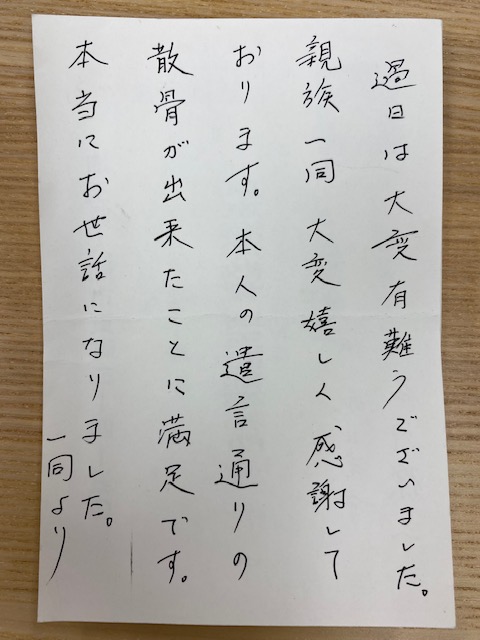 過日は大変有難うございました。
親族一同大変嬉しく感謝して
おります。本人の遺言通りの
散骨が出来たことに満足です。
本当にお世話になりました。
一同より